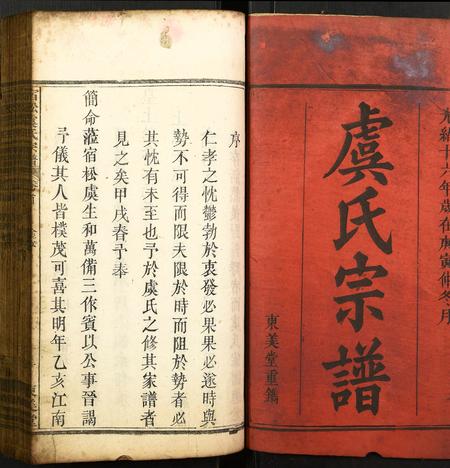 光緒十六年歲在庚寅仲冬月
虞氏宗譜
東美堂重鐫
序
仁孝之忱鬱勃於衷發必果果必遂時與
勢不可得而限夫限於時而阻於勢者必
其忱有未至也予於虞氏之修其家譜者
見之矣甲戌春予奉
簡命蒞宿松虞生和萬備三作賓以公事晉謁
予儀其人皆樸茂可喜其明年乙亥江南